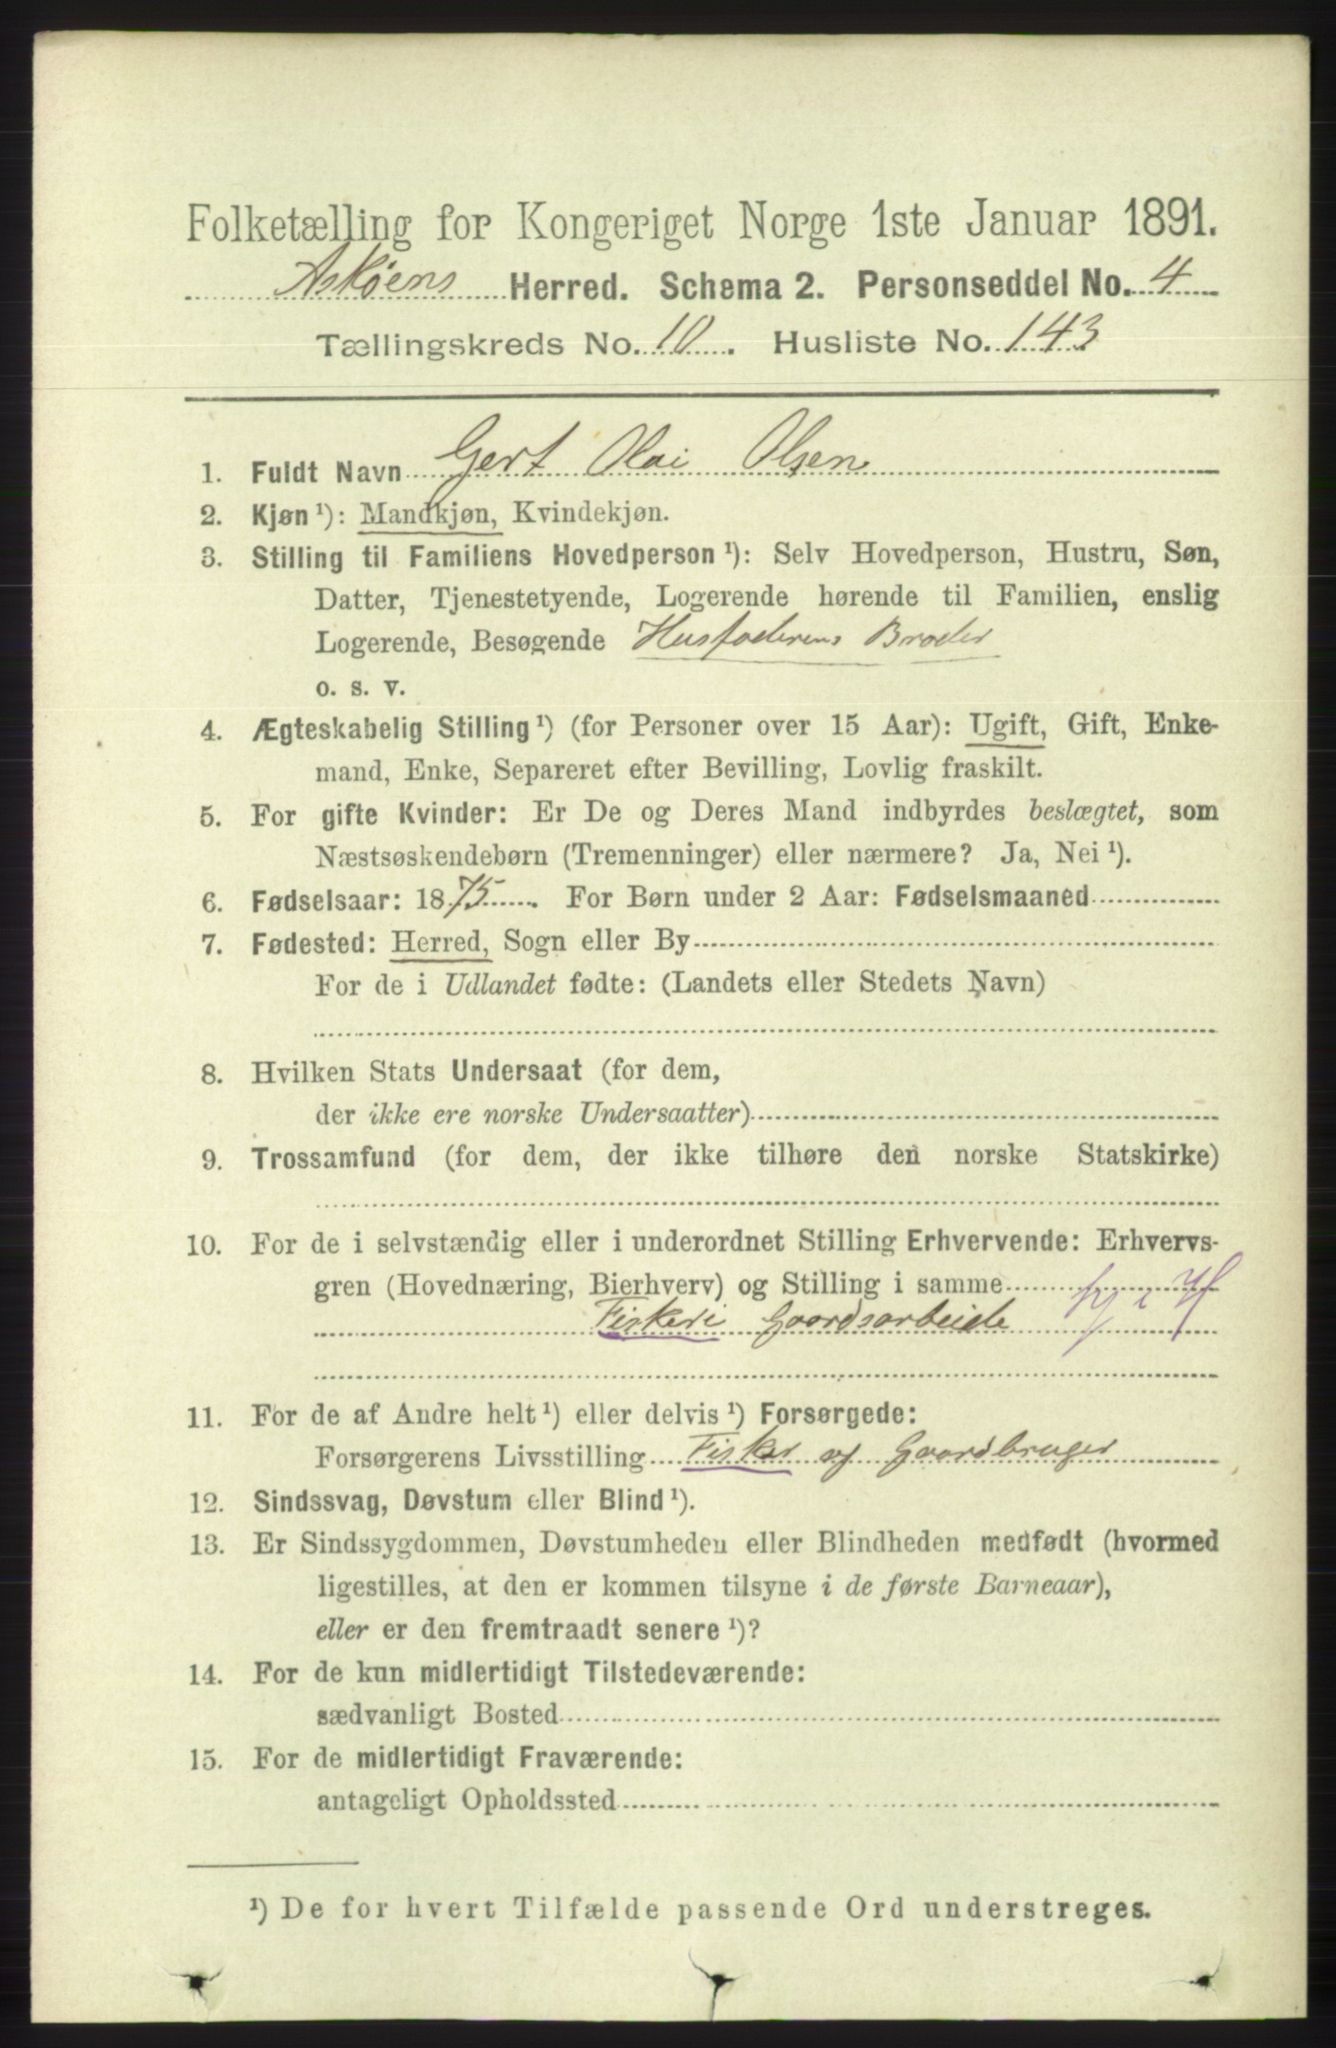 Folketælling for Kongeriget Norge 1ste Januar 1891.
Askøens Herred. Schema 2. Personseddel No. 4
Tællingskreds No. 10. Husliste No. 143
1. Fuldt Navn Gert Olai Olsen
2. Kjøn ¹): Mandkjøn, Kvindekjøn.
3. Stilling til Familiens Hovedperson ¹): Selv Hovedperson, Hustru, Søn,
Datter, Tjenestetyende, Logerende hørende til Familien, enslig
Logerende, Besøgende Husfaderens Broder
o. s. v.
4. Ægteskabelig Stilling ¹) (for Personer over 15 Aar): Ugift, Gift, Enke-
mand, Enke, Separeret efter Bevilling, Lovlig fraskilt.
5. For gifte Kvinder: Er De og Deres Mand indbyrdes beslægtet, som
Næstsøskendebørn (Tremenninger) eller nærmere? Ja, Nei ¹).
6. Fødselsaar: 1875. For Børn under 2 Aar: Fødselsmaaned
7. Fødested: Herred, Sogn eller By
For de i Udlandet fødte: (Landets eller Stedets Navn)
8. Hvilken Stats Undersaat (for dem,
der ikke ere norske Undersaatter)
9. Trossamfund (for dem, der ikke tilhøre den norske Statskirke)
10. For de i selvstændig eller i underordnet Stilling Erhvervende: Erhvervs-
gren (Hovednæring, Bierhverv) og Stilling i samme
Fiskeri Gaardsarbeide
11. For de af Andre helt ¹) eller delvis ¹) Forsørgede:
Forsørgerens Livsstilling Fisker og Gaardbruger
12. Sindssvag, Døvstum eller Blind ¹).
13. Er Sindssygdommen, Døvstumheden eller Blindheden medfødt (hvormed
ligestilles, at den er kommen tilsyne i de første Barneaar),
eller er den fremtraadt senere ¹)?
14. For de kun midlertidigt Tilstedeværende:
sædvanligt Bosted
15. For de midlertidigt Fraværende:
antageligt Opholdssted
¹) De for hvert Tilfælde passende Ord understreges.